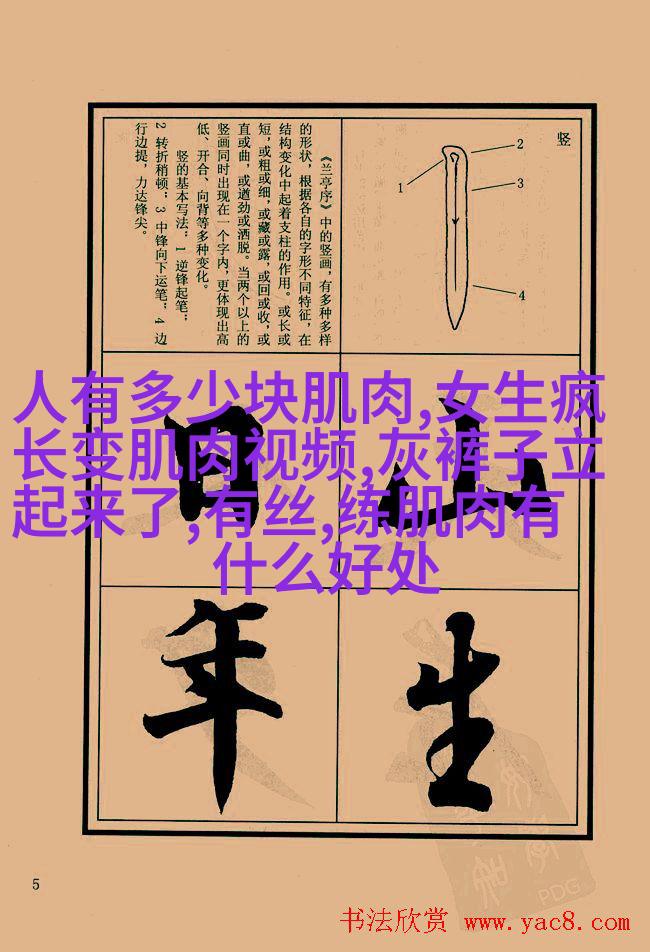 竖
1
2
3
4
《兰亭序》中的竖画，有多种多样
的形状，根据各自的字形不同特征，在
结构变化中起着支柱的作用。或长或
短，或粗或细，或藏或露，或回或收，或
直或曲，或遒劲或洒脱。当两个以上的
竖画同时出现在一个字内，更体现出高
低、开合、向背等多种变化。
竖的基本写法：1 逆锋起笔；
2 转折稍顿；3 中锋向下运笔；4 边
行边提，力达锋尖。
人有多少块肌肉,女生疯
长变肌肉视频,灰裤子立
起来了,有丝,练肌肉有
什么好处
山
日
生
年
5
书法欣赏 www.yac8.com
PDG